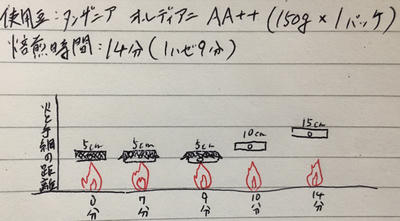 使用豆:タンザニア オルディアニ AA++ (150g × 1パック)
焙煎時間:14分 (1ハゼ9分)
火と手網の距離
5cm 5cm 5cm 10cm 15cm
0分 7分 9分 10分 14分